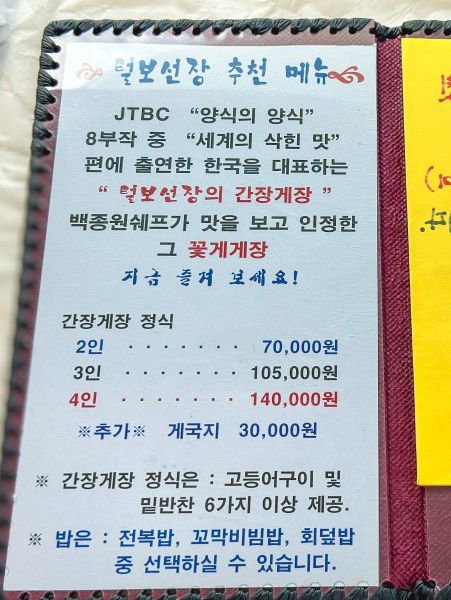 털보선장 추천 메뉴
JTBC "양식의 양식"
8부작 중 "세계의 삭힌 맛"
편에 출연한 한국을 대표하는
" 털보선장의 간장게장 "
백종원쉐프가 맛을 보고 인정한
그 꽃게게장
지금 즐겨 보세요!
간장게장 정식
2인 · · · · · · · 70,000원
3인 · · · · · · · 105,000원
4인 · · · · · · · 140,000원
※추가※ 게국지 30,000원
※ 간장게장 정식은 : 고등어구이 및
밑반찬 6가지 이상 제공.
※ 밥은 : 전복밥, 꼬막비빔밥, 회덮밥
중 선택하실 수 있습니다.